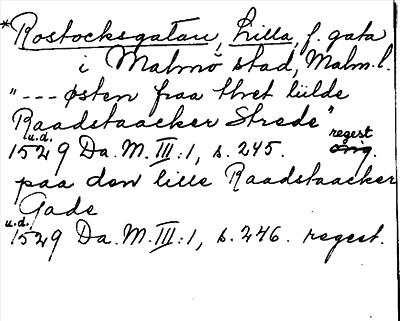 *Rostocksgatan, Lilla, f. gata
i Malmö stad, Malm. l.
"--- østen fraa thet lülde
Raadstaacker Strede"
u.d. 1529 Da. M. III:1, s. 245. orig. regest
paa den lille Raadstaacker
Gade
u.d. 1529 Da. M. III:1, s. 246. regest.